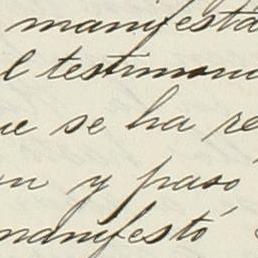 manifesta
l testimoni
ue se ha re
n y pasó
manifestó